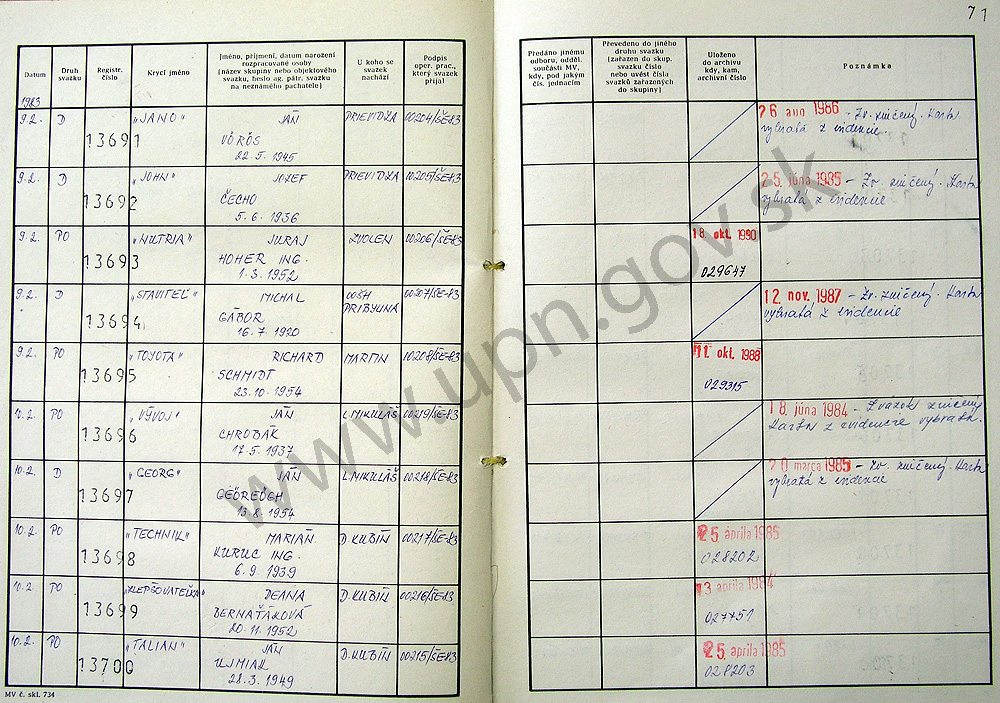 71
Datum
Druh svazku
Registr. číslo
Krycí jméno
Jméno, příjmení, datum narození
rozpracované osoby
(název skupiny nebo objektového
svazku, heslo ag. pátr. svazku
na neznámého pachatele)
U koho se
svazek
nachází
Podpis
oper. prac.,
který svazek
přijal
Předáno jinému
odboru, odděl.
součásti MV,
kdy, pod jakým
čís. jednacím
Převedeno do jiného
druhu svazku
(zařazen do skup.
svazku číslo
nebo uvést čísla
svazků zařazených
do skupiny)
Uloženo
do archivu
kdy, kam,
archivní číslo
Poznámka
1983
9.2. D 13691 "JANO" JÁN PRIEVIDZA 00204/ŠE-83
VÖRÖS
22. 5. 1945
26 aug 1986 - Zv. zničený. Karta
vybratá z evidencie.
9.2. D 13692 "JOHN" JOZEF PRIEVIDZA 00205/ŠE-83
ČECHO
5. 6. 1936
25. júna 1985 - Zv. zničený. Karta
vybratá z evidencie
9.2. PO 13693 "NUTRIA" JURAJ ZVOLEN 00206/ŠE-83
HOHER ING.
1. 3. 1952
18. okt. 1990
029647
9.2. D 13694 "STAVITEĽ" MICHAL OOŠH PRIBYLINA 00207/ŠE-83
GÁBOR
16. 7. 1920
12. nov. 1987 - Zv. zničený. Karta
vybratá z evidencie
9.2. PO 13695 "TOYOTA" RICHARD MARTIN 00208/ŠE-83
SCHMIDT
23. 10. 1954
11. okt. 1988
029315
10.2. PO 13696 "VÝVOJ" JÁN L. MIKULÁŠ 00219/ŠE-83
CHROBÁK
17. 5. 1937
18. júna 1984 - Zväzok zničený
Karta z evidencie vybratá.
10.2. D 13697 "GEORG" JÁN L. MIKULÁŠ 00218/ŠE-83
GEÖREÖGH
13. 8. 1954
20 marca 1985 - Zv. zničený. Karta
vybratá z evidencie
10.2. PO 13698 "TECHNIK" MARIAN D. KUBÍN 00217/ŠE-83
KURUC ING.
6. 9. 1939
25 apríla 1985
028202
10.2. PO 13699 "ZLEPŠOVATEĽKA" DEANA D. KUBÍN 00216/ŠE-83
BERNAŤÁKOVÁ
20. 11. 1952
13 apríla 1984
027751
10.2. PO 13700 "TALIAN" JÁN D. KUBÍN 00215/ŠE-83
UJMIAK
28. 3. 1949
25. apríla 1985
028203
MV č. skl. 734
www.upn.gov.sk